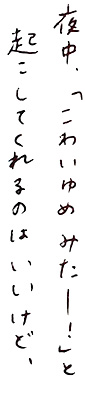 夜中、「こわいゆめみたー!」と
起こしてくれるのはいいけど、